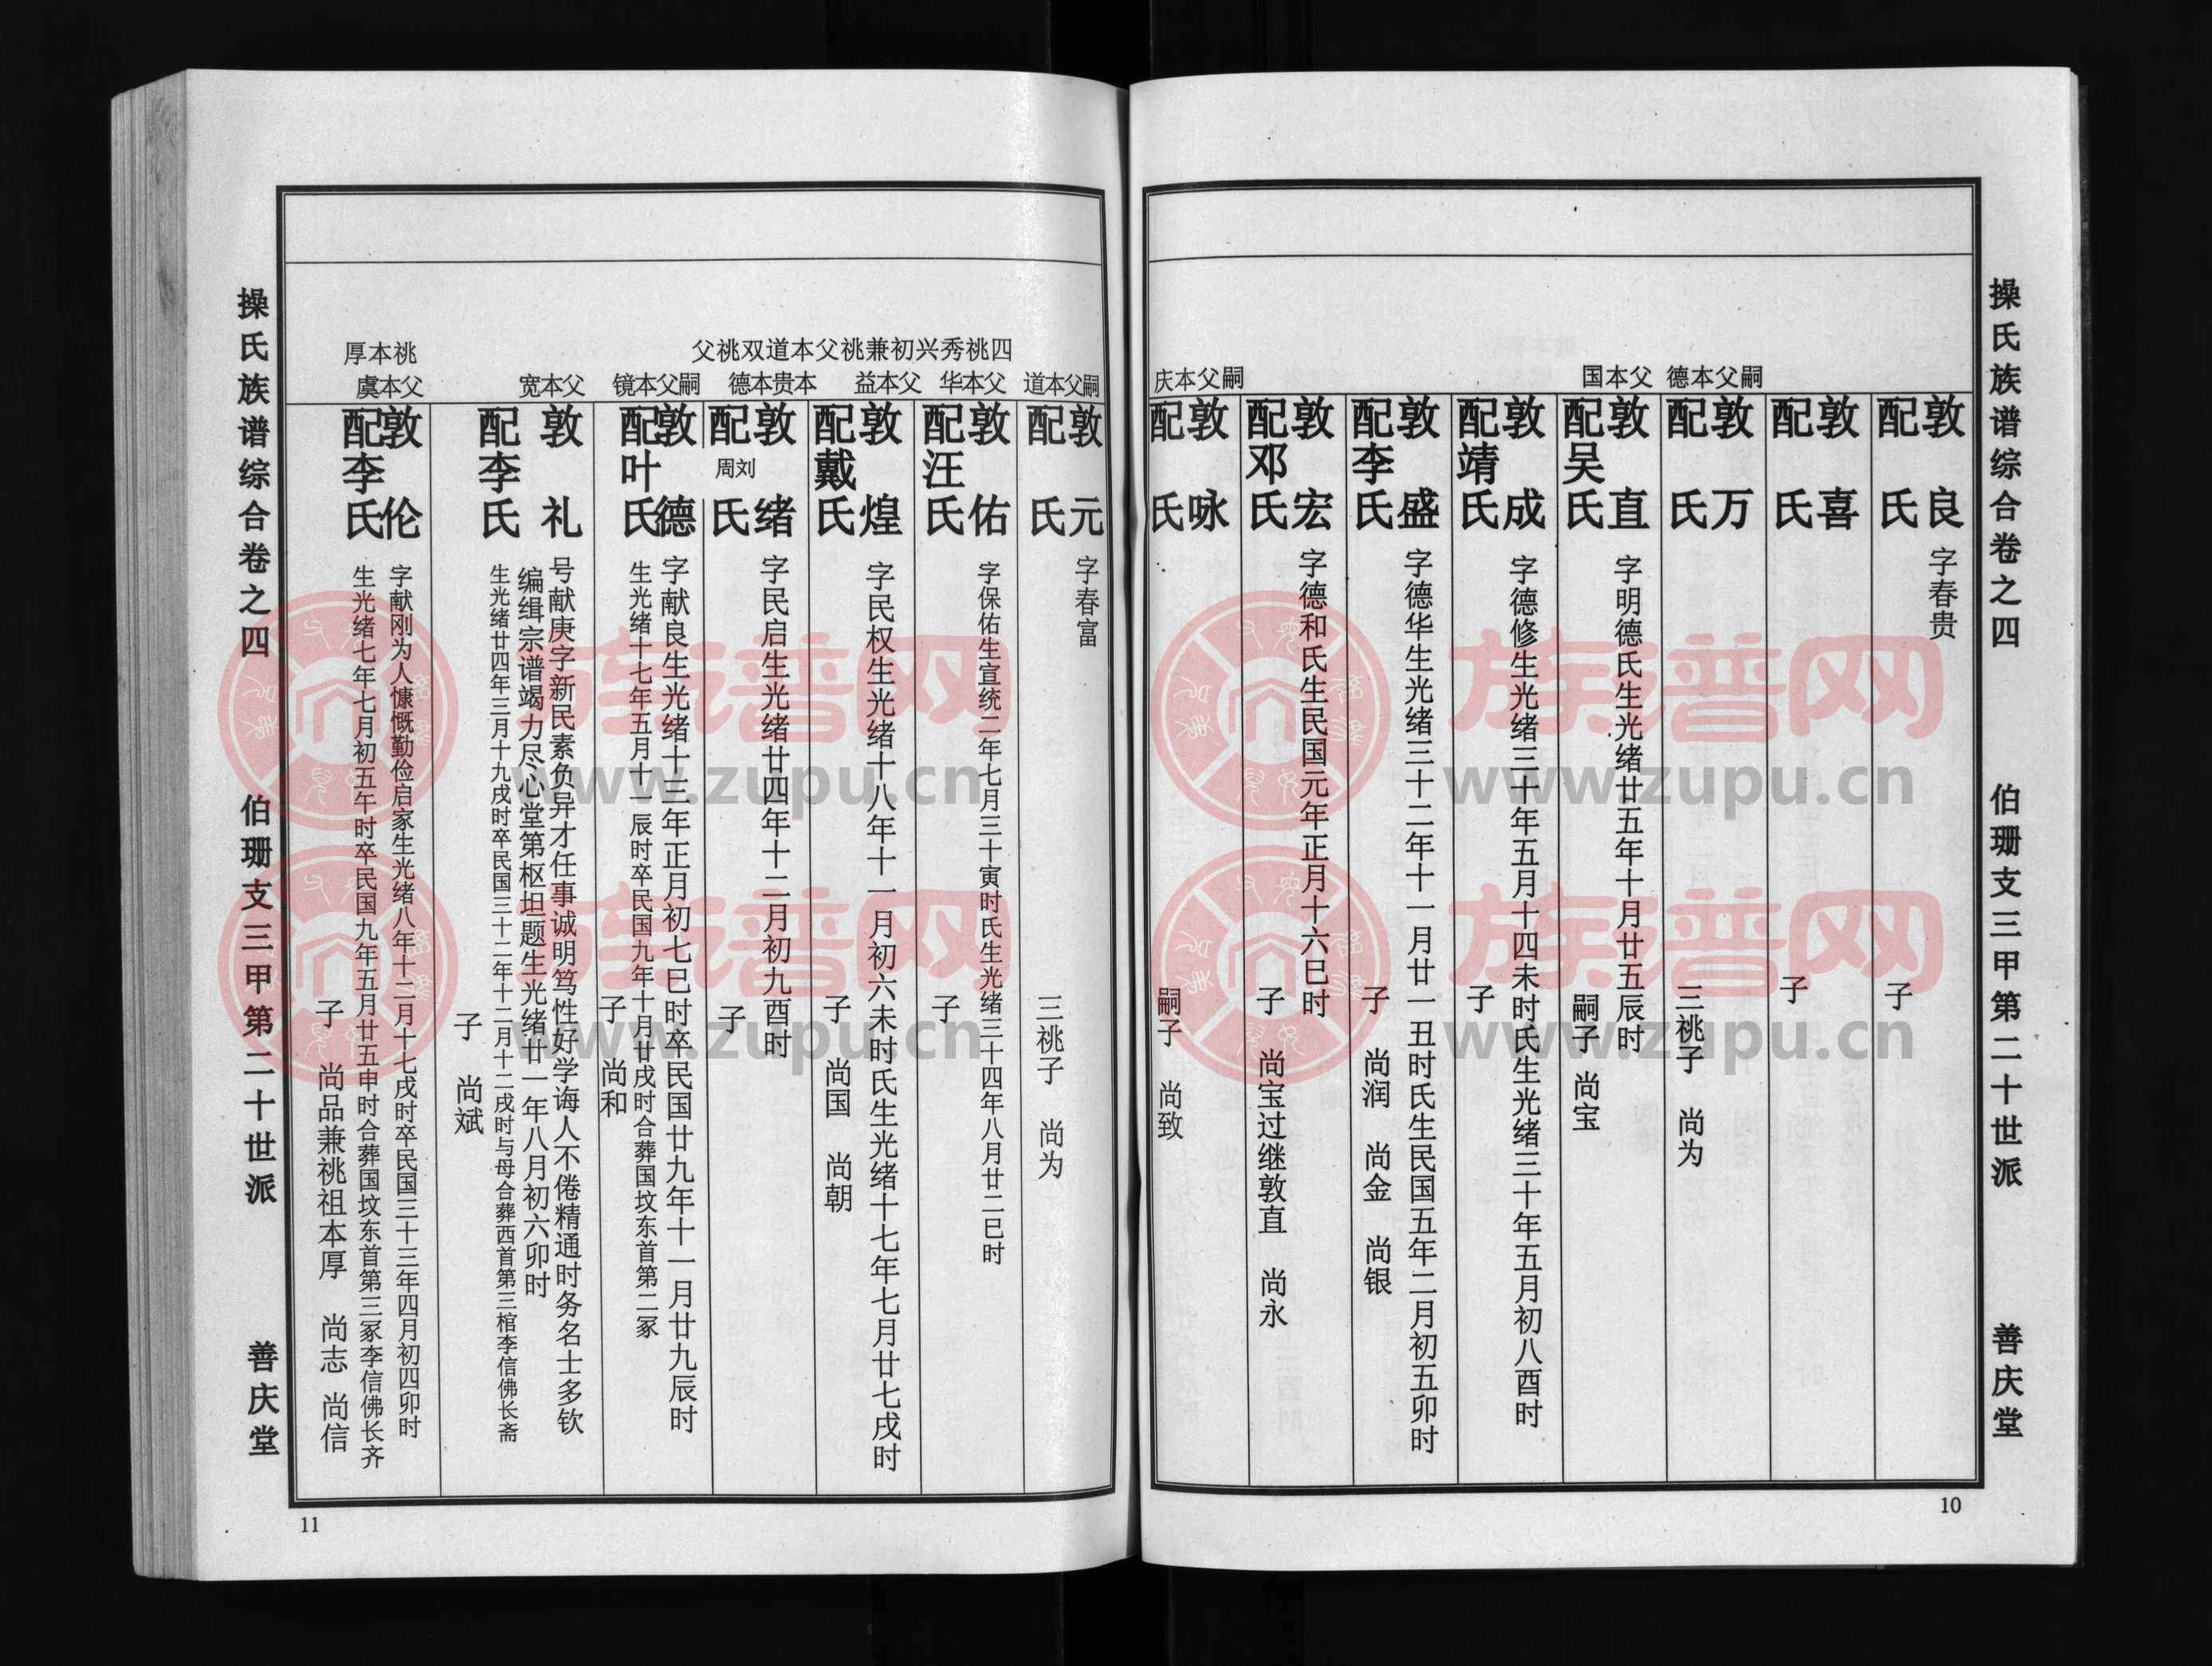 操氏族谱综合卷之四　伯珊支三甲第二十世派　善庆堂
敦良　字春贵
配　氏
子
敦喜
配　氏
子
嗣父本德
敦万
配　氏
三祧子　尚为
父本国
敦直　字明德氏生光绪廿五年十月廿五辰时
配吴氏
嗣子　尚宝
敦成　字德修生光绪三十年五月十四未时氏生光绪三十年五月初八酉时
配靖氏
子
敦盛　字德华生光绪三十二年十一月廿一丑时氏生民国五年二月初五卯时
配李氏
子　尚润　尚金　尚银
敦宏　字德和氏生民国元年正月十六巳时
配邓氏
子　尚宝过继敦直　尚永
嗣父本庆
敦咏
配　氏
嗣子　尚致
10
四祧秀兴初兼祧父本道双祧父
嗣父本道
敦元　字春富
配　氏
三祧子　尚为
父本华
敦佑　字保佑生宣统二年七月三十寅时氏生光绪三十四年八月廿二巳时
配汪氏
子
父本益
敦煌　字民权生光绪十八年十一月初六未时氏生光绪十七年七月廿七戌时
配戴氏
子　尚国　尚朝
本贵本德
敦绪　字民启生光绪廿四年十二月初九酉时
配刘周氏
子
嗣父本镜
敦德　字献良生光绪十三年正月初七巳时卒民国廿九年十一月廿九辰时
配叶氏　生光绪十七年五月十一辰时卒民国九年十月廿戌时合葬国坟东首第二冢
子　尚和
父本宽
敦礼　号献庚字新民素负异才任事诚明笃性好学诲人不倦精通时务名士多钦
编缉宗谱竭力尽心堂第枢坦题生光绪廿一年八月初六卯时
配李氏　生光绪廿四年三月十九戌时卒民国三十二年十二月十二戌时与母合葬西首第三棺李信佛长斋
子　尚斌
祧本厚
父本虞
敦伦　字献刚为人慷慨勤俭启家生光绪八年十二月十七戌时卒民国三十三年四月初四卯时
配李氏　生光绪七年七月初五午时卒民国九年五月廿五申时合葬国坟东首第三冢李信佛长齐
子　尚品兼祧祖本厚　尚志　尚信
操氏族谱综合卷之四　伯珊支三甲第二十世派　善庆堂
11
族谱网
www.zupu.cn
族谱网
www.zupu.cn
族谱网
www.zupu.cn
族谱网
www.zupu.cn